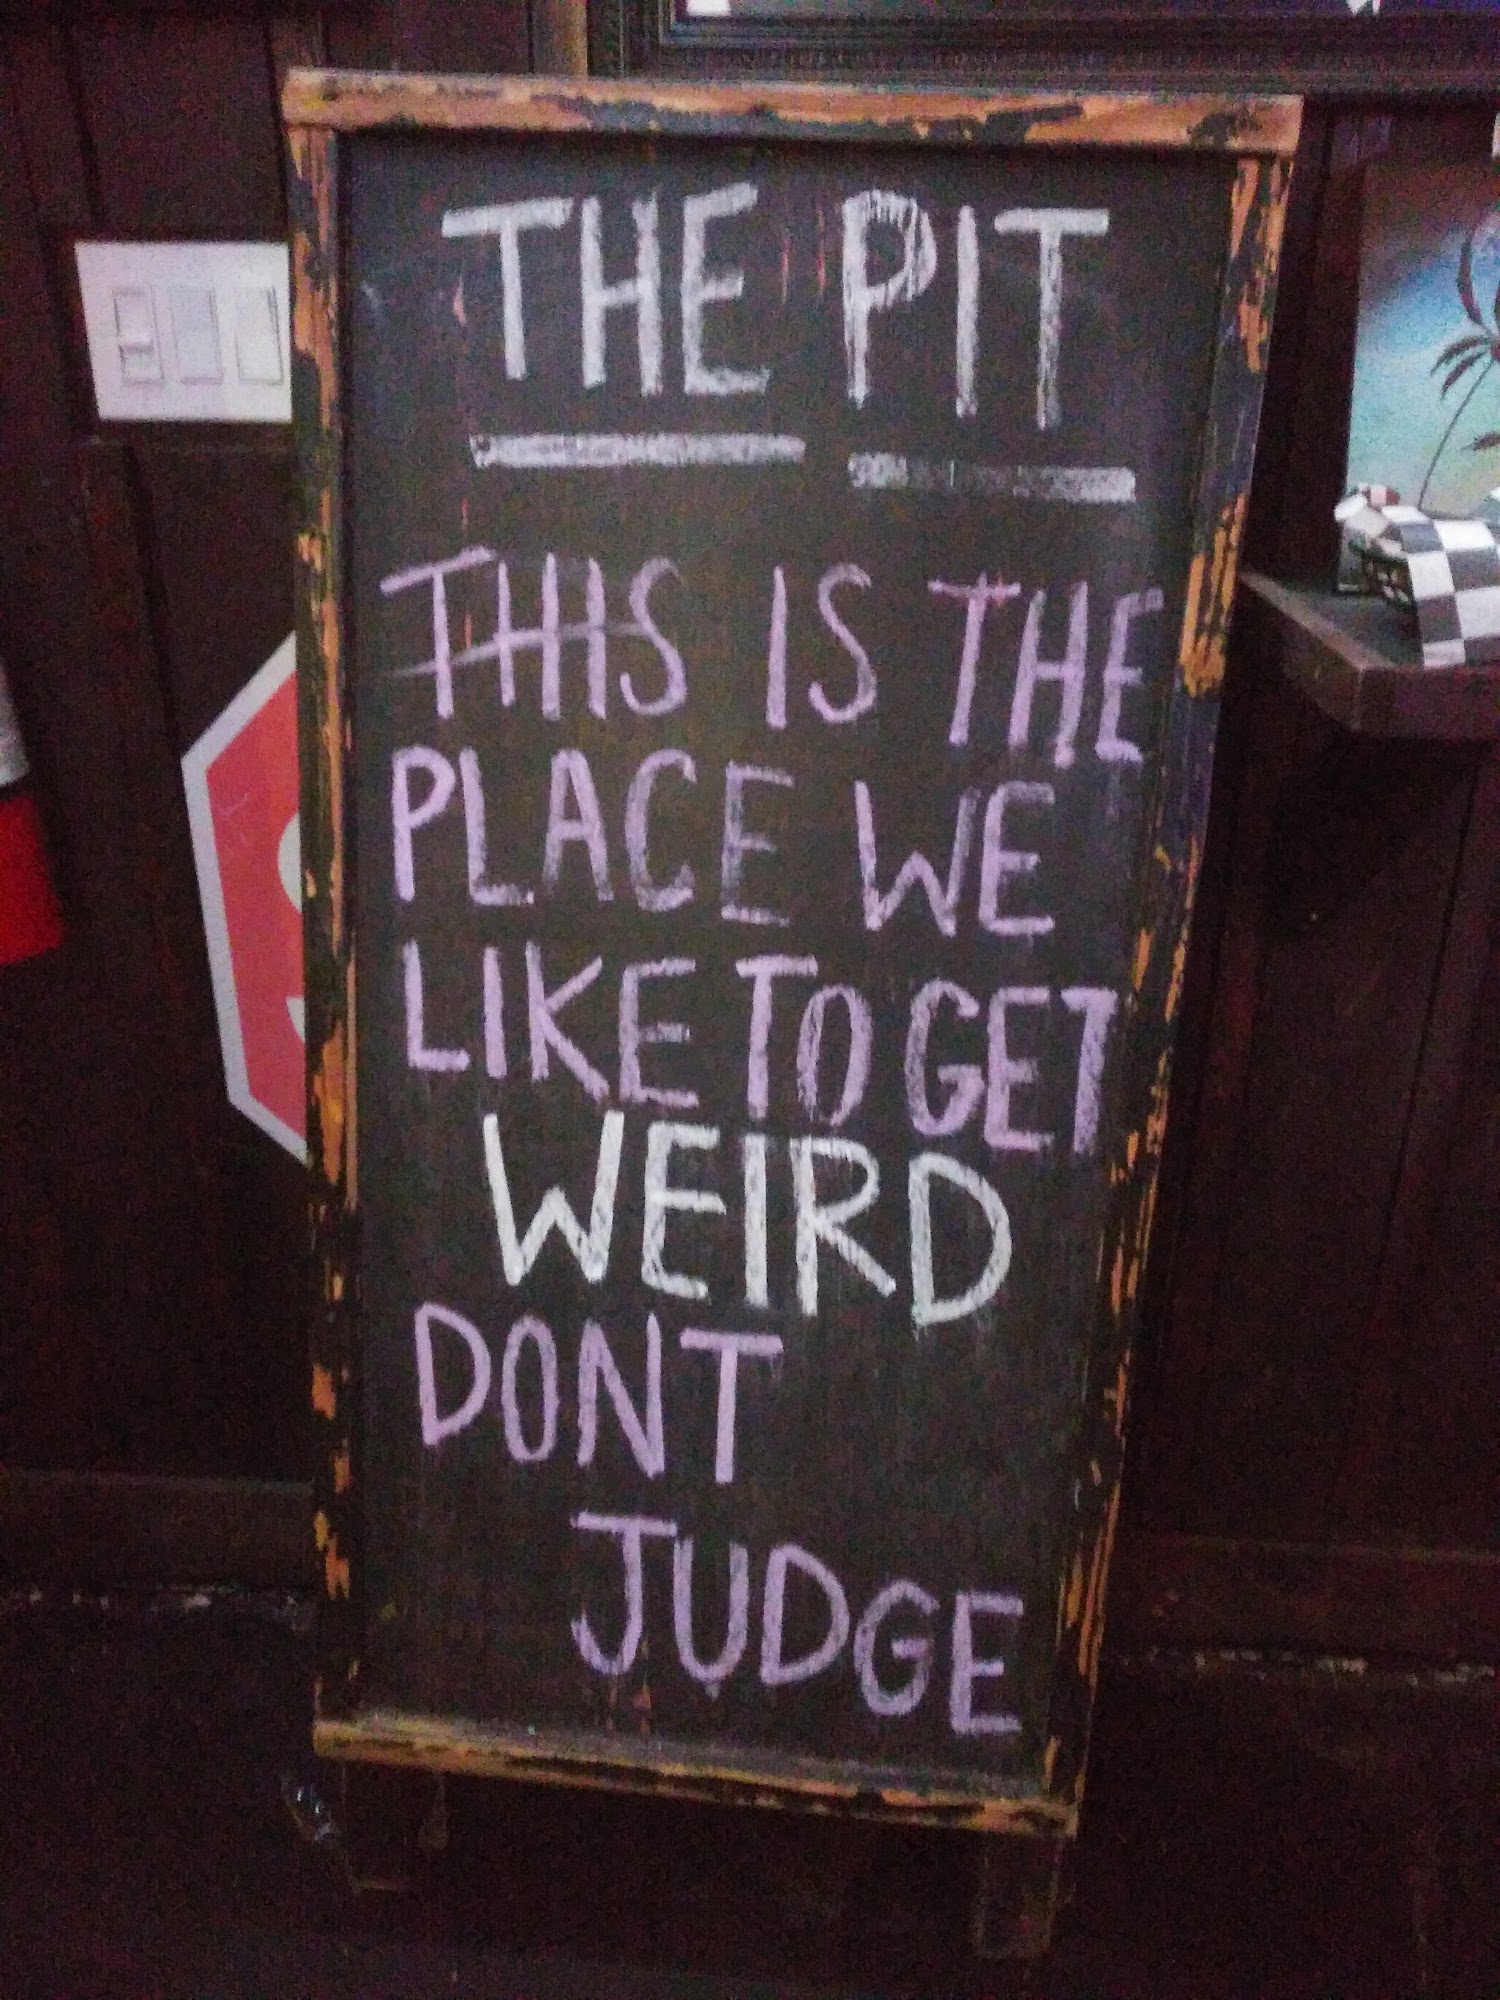 THE PIT
THIS IS THE
PLACE WE
LIKE TO GET
WEIRD
DONT
JUDGE